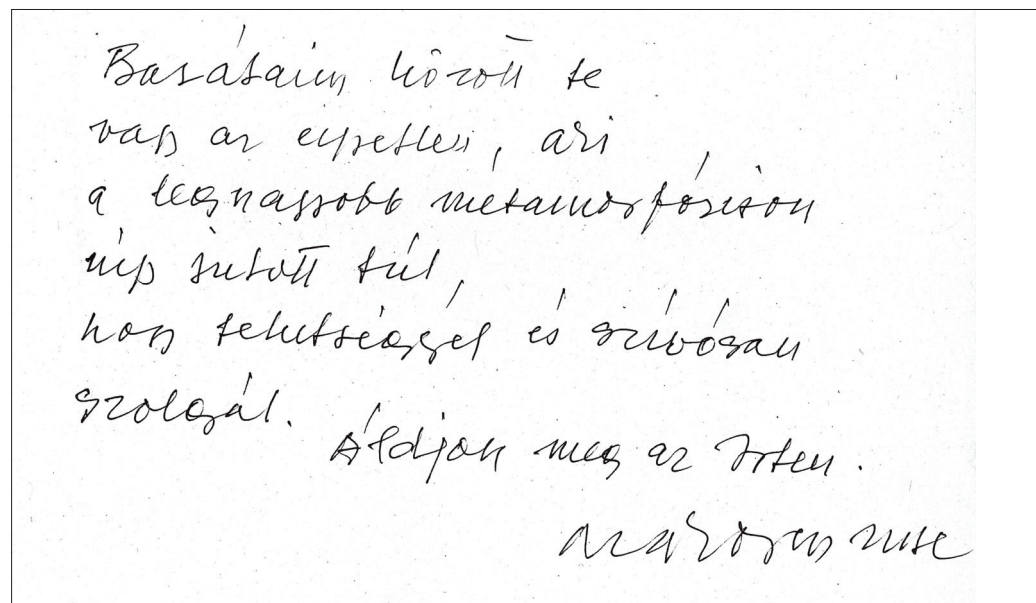 Barátaim között te
vagy az egyetlen, aki
a legnagyobb metamorfózison
úgy jutott túl,
hogy tehetséggel és szívósan
szolgál.
Áldjon meg az Isten.
Makovecz Imre